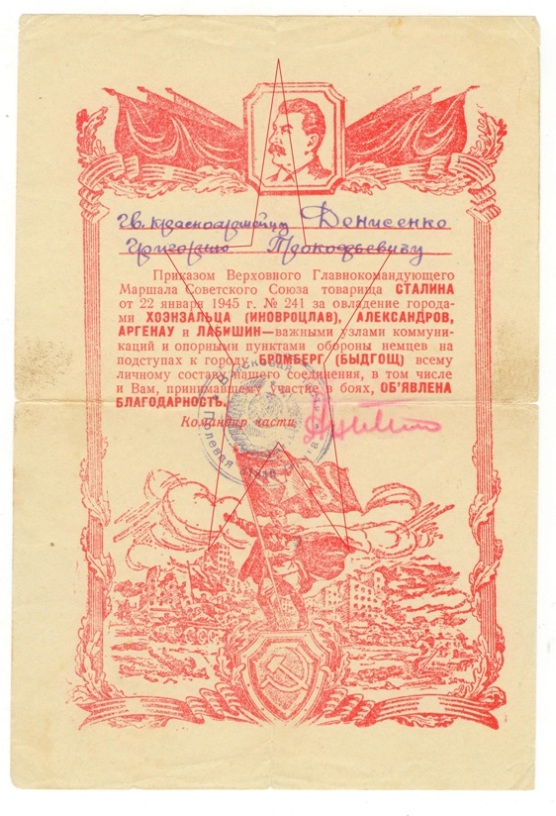 Гв. красноармейцу Денисенко
Григорию Прокофьевичу
Приказом Верховного Главнокомандующего
Маршала Советского Союза товарища СТАЛИНА
от 22 января 1945 г. № 241 за овладение города-
ми ХОЭНЗАЛЬЦА (ИНОВРОЦЛАВ), АЛЕКСАНДРОВ,
АРГЕНАУ и ЛАБИШИН—важными узлами коммуни-
каций и опорными пунктами обороны немцев на
подступах к городу БРОМБЕРГ (БЫДГОЩ) всему
личному составу нашего соединения, в том числе
и Вам, принимавшему участие в боях, ОБ'ЯВЛЕНА
БЛАГОДАРНОСТЬ.
Командир части
Полевая